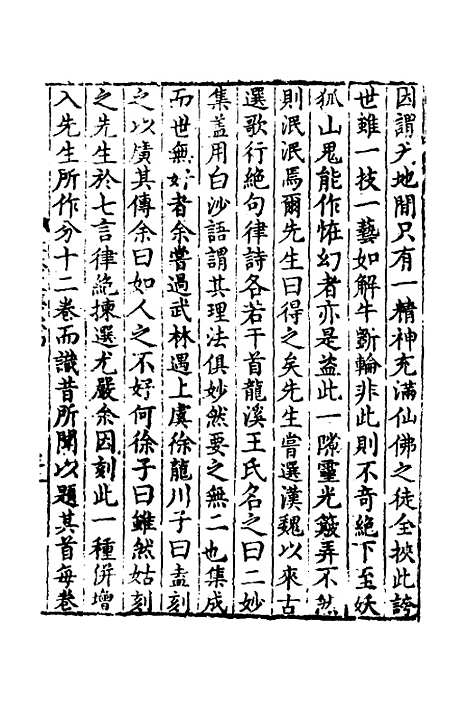 因謂天地間只有一精神充滿仙佛之徒全挾此誇
世雖一技一藝如解牛斵輪非此則不奇絕下至妖
狐山鬼能作恠幻者亦是益此一隙靈光簸弄不然
則泯泯焉爾先生曰得之矣先生嘗選漢魏以來古
選歌行絕句律詩各若干首龍溪王氏名之曰二妙
集盖用白沙語謂其理法俱妙然要之無二也集成
而世無好者余嘗過武林遇上虞徐龍川子曰盍刻
之以廣其傳余曰如人之不好何徐子曰雖然姑刻
之先生於七言律絕揀選尤嚴余因刻此一種併增
入先生所作分十二卷而識昔所聞以題其首每卷